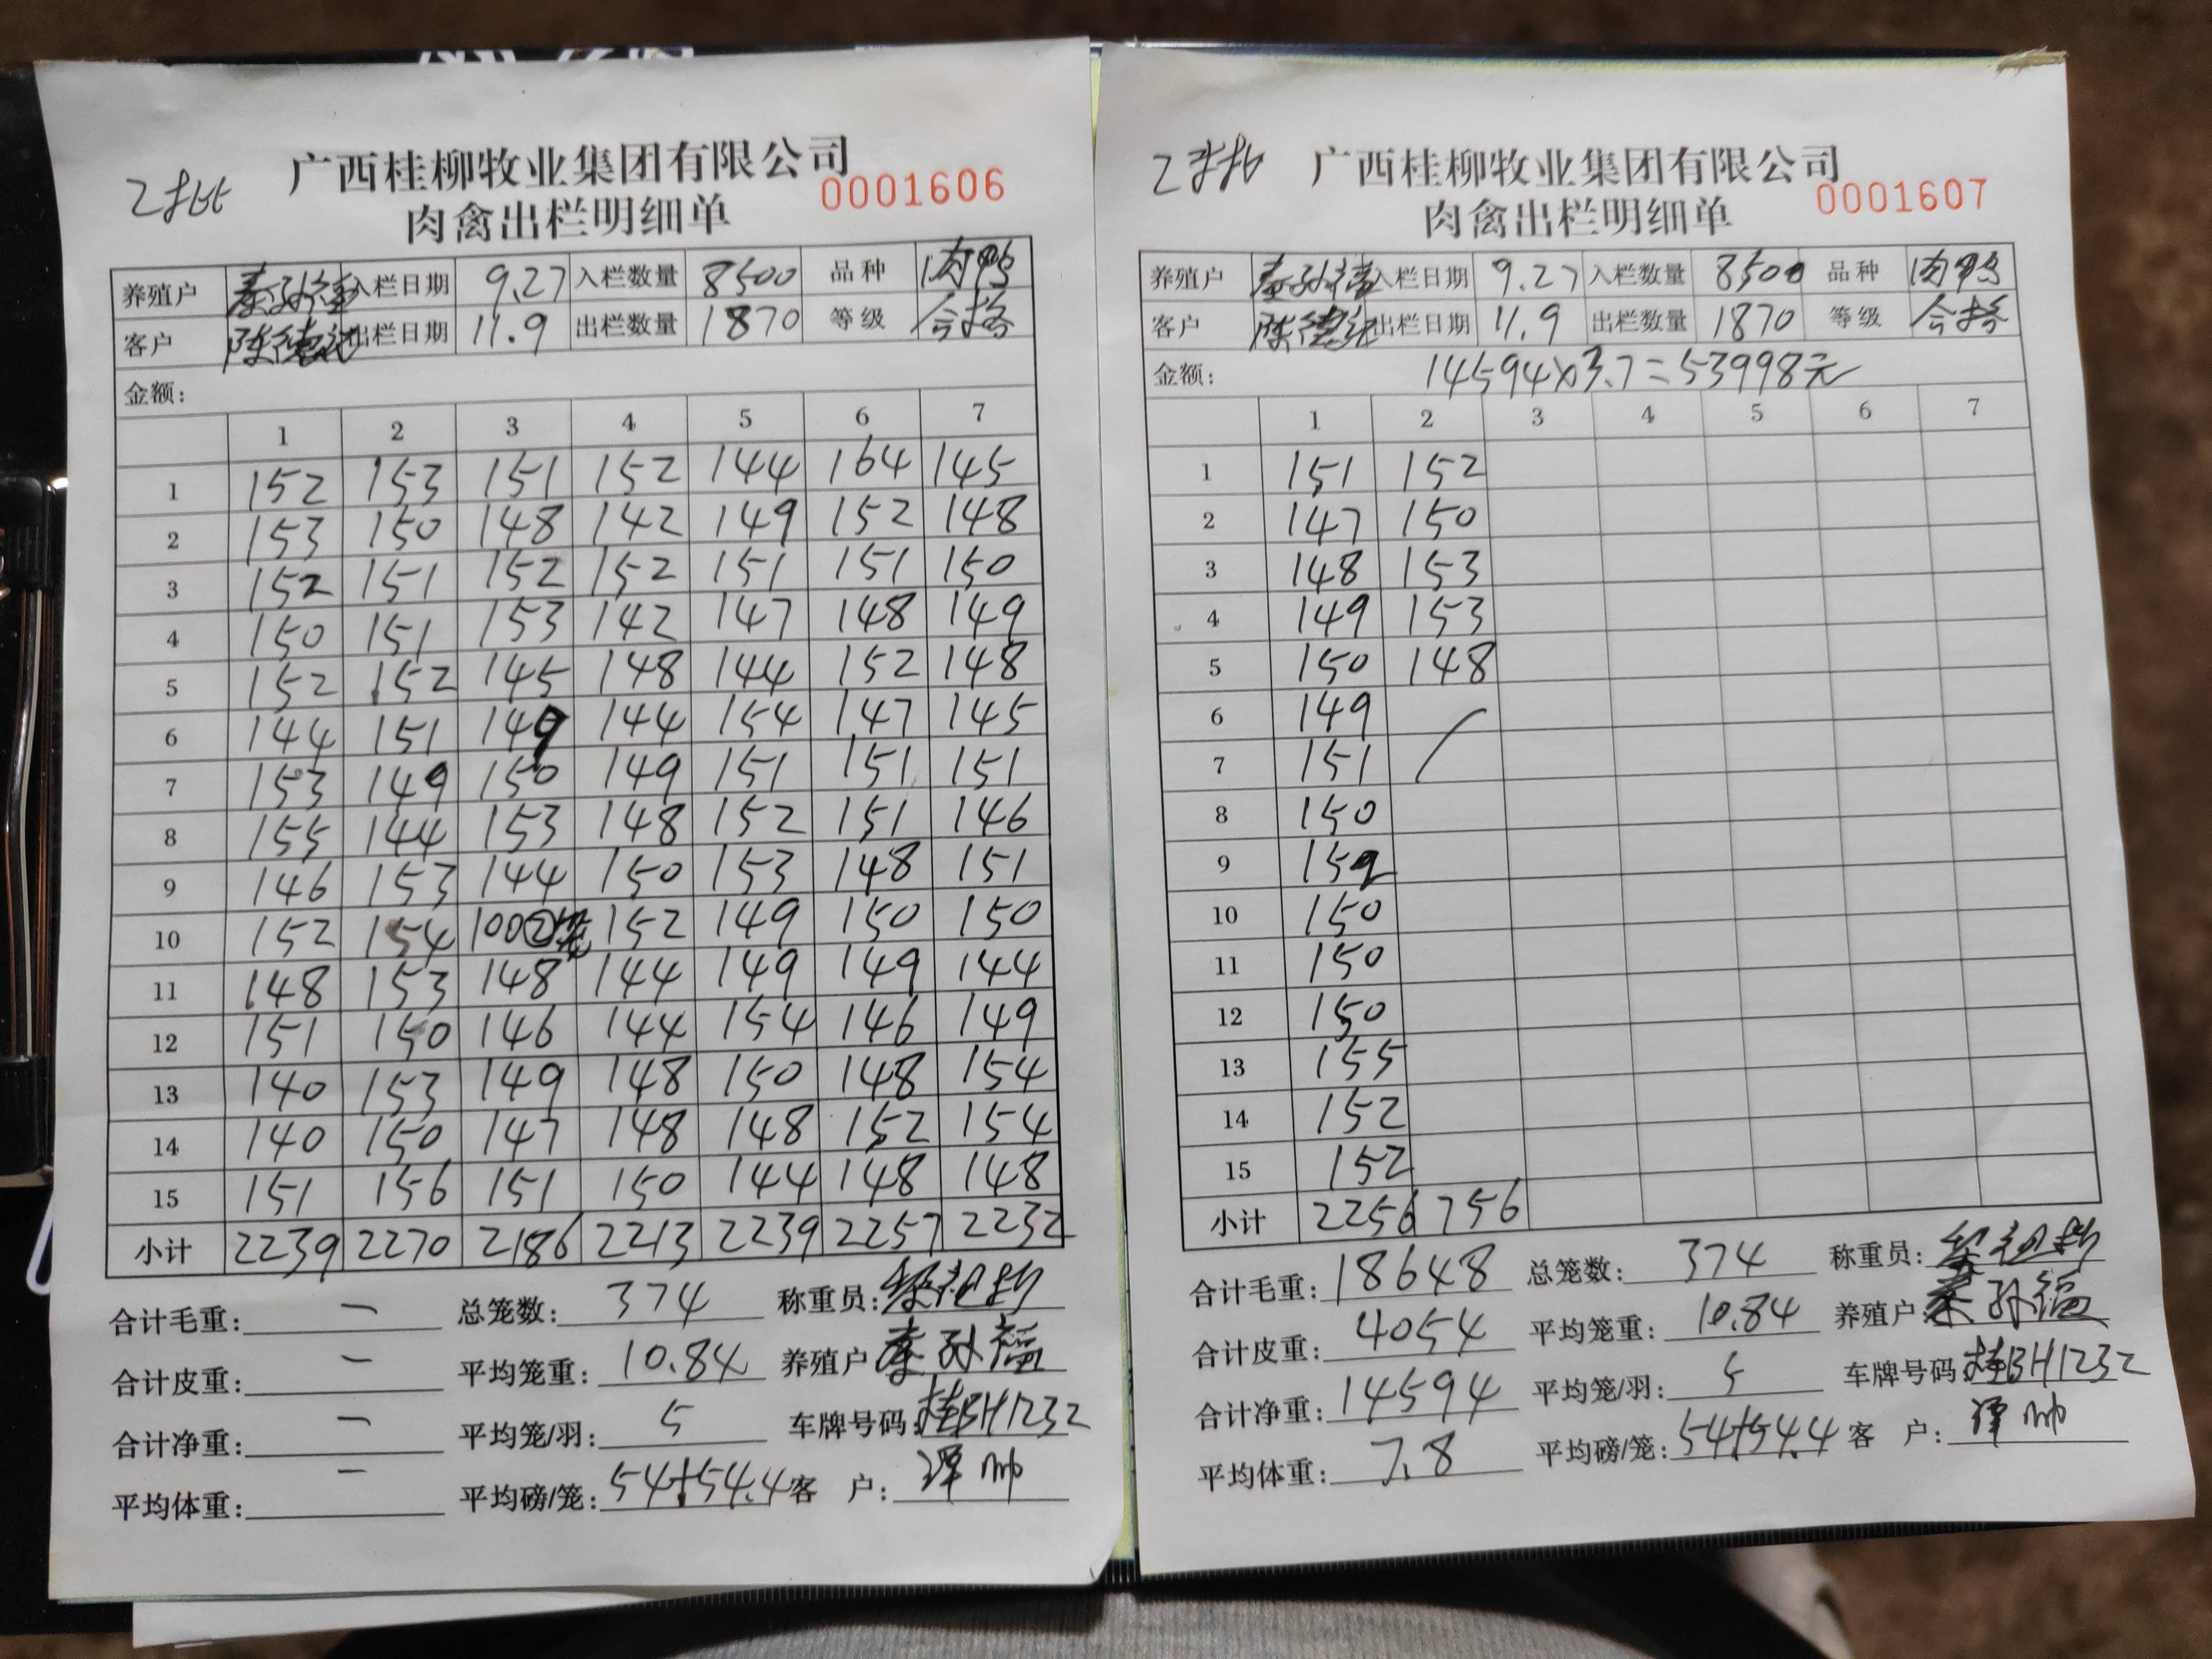 广西桂柳牧业集团有限公司
肉禽出栏明细单
0001606
养殖户 入栏日期 9.27 入栏数量 8500 品种 肉鸭
客户 陈德 出栏日期 11.9 出栏数量 1870 等级 合格
金额:
1 2 3 4 5 6 7
1 152 153 151 152 144 164 145
2 153 150 148 142 149 152 148
3 152 151 152 152 151 151 150
4 150 151 153 142 147 148 149
5 152 152 145 148 144 152 148
6 144 151 149 144 154 147 145
7 153 149 150 149 151 151 151
8 155 144 153 148 152 151 146
9 146 153 144 150 153 148 151
10 152 154 100②笼 152 149 150 150
11 148 153 148 144 149 149 144
12 151 150 146 144 154 146 149
13 140 153 149 148 150 148 154
14 140 150 147 148 148 152 154
15 151 156 151 150 144 148 148
小计 2239 2270 2186 2213 2239 2257 2232
合计毛重: — 总笼数: 374 称重员:
合计皮重: — 平均笼重: 10.84 养殖户
合计净重: — 平均笼/羽: 5 车牌号码: 桂BH1232
平均体重: — 平均磅/笼: 54+54.4 客 户: 谭帅
广西桂柳牧业集团有限公司
肉禽出栏明细单
0001607
养殖户 入栏日期 9.27 入栏数量 8500 品种 肉鸭
客户 陈德 出栏日期 11.9 出栏数量 1870 等级 合格
金额: 14594×3.7=53998元
1 2 3 4 5 6 7
1 151 152
2 147 150
3 148 153
4 149 153
5 150 148
6 149
7 151
8 150
9 152
10 150
11 150
12 150
13 155
14 152
15 152
小计 2256 756
合计毛重: 18648 总笼数: 374 称重员:
合计皮重: 4054 平均笼重: 10.84 养殖户:
合计净重: 14594 平均笼/羽: 5 车牌号码 桂BH1232
平均体重: 7.8 平均磅/笼: 54+54.4 客 户: 谭帅